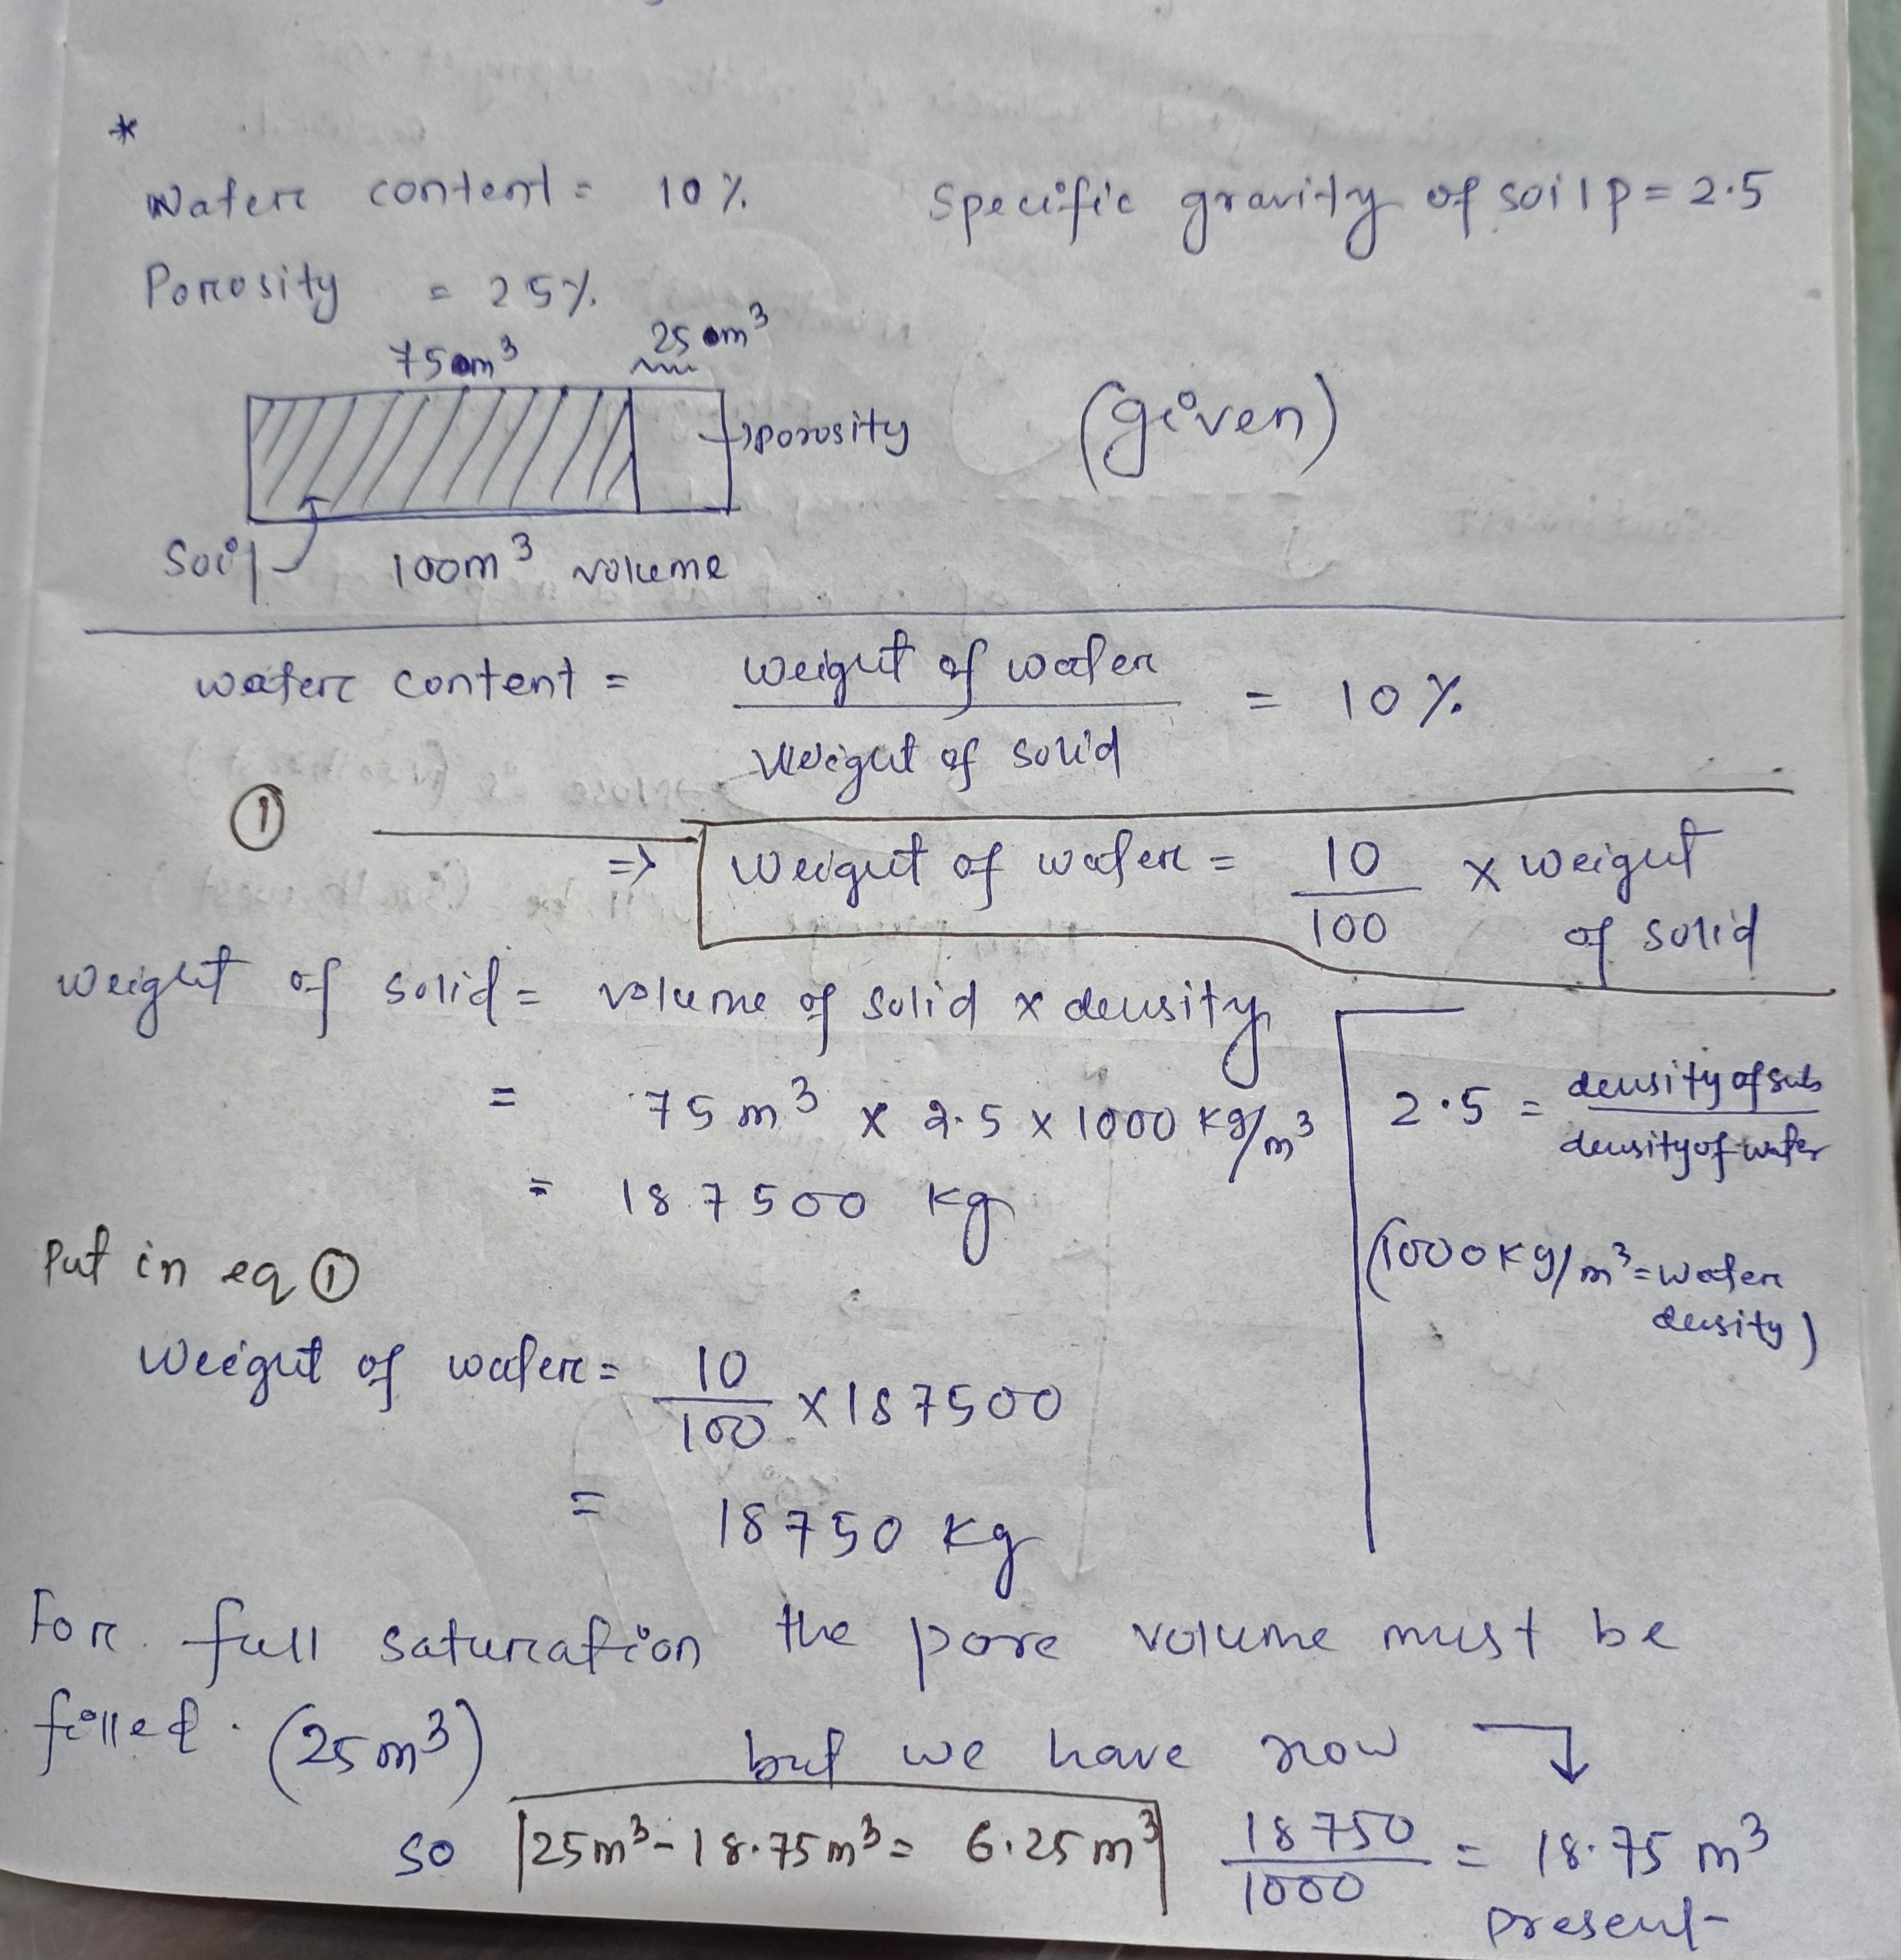 *
Water content = 10% Specific gravity of soil p = 2.5
Porosity = 25%
75 m³ 25 m³
→ porosity (given)
Soil 100m³ volume
water content = weight of water / Weight of solid = 10%
① ⇒ Weight of water = 10/100 x weight of solid
weight of solid = volume of solid x density
= 75 m³ x 2.5 x 1000 kg/m³
= 187500 kg
2.5 = density of sub / density of water
(1000 kg/m³ = water density)
Put in eq ①
Weight of water = 10/100 x 187500
= 18750 kg
For full saturation the pore volume must be
filled. (25 m³) but we have now
18750/1000 = 18.75 m³ present
so 25m³ - 18.75m³ = 6.25 m³